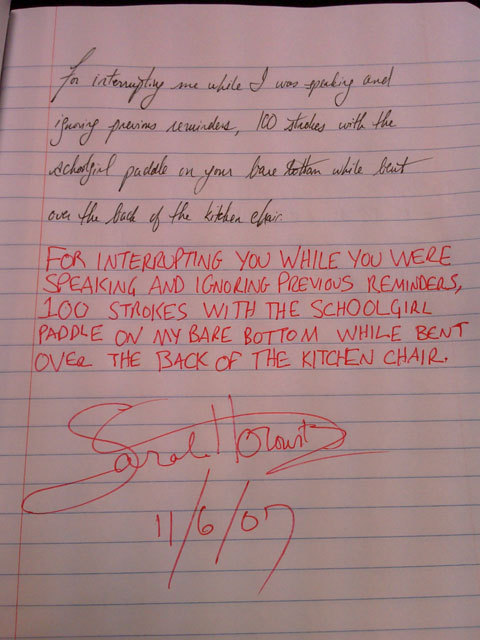 For interrupting me while I was speaking and
ignoring previous reminders, 100 strokes with the
schoolgirl paddle on your bare bottom while bent
over the back of the kitchen chair.
FOR INTERRUPTING YOU WHILE YOU WERE
SPEAKING AND IGNORING PREVIOUS REMINDERS,
100 STROKES WITH THE SCHOOLGIRL
PADDLE ON MY BARE BOTTOM WHILE BENT
OVER THE BACK OF THE KITCHEN CHAIR.
Sarah Horowitz
11/6/07